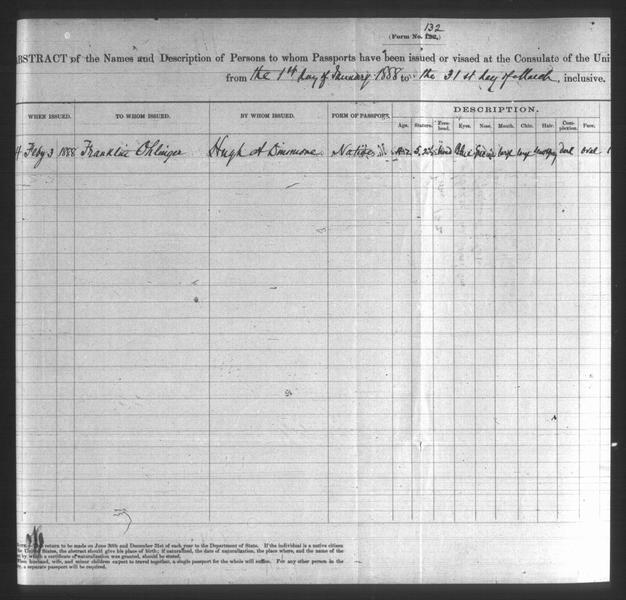 132
(Form No. 132.)
ABSTRACT of the Names and Description of Persons to whom Passports have been issued or visaed at the Consulate of the Uni
from the 1st day of January 1888 to the 31st day of March, inclusive.
DESCRIPTION.
WHEN ISSUED. TO WHOM ISSUED. BY WHOM ISSUED. FORM OF PASSPORT. Age. Stature. Forehead. Eyes. Nose. Mouth. Chin. Hair. Complexion. Face.
Feby 3 1888 Franklin Ohlinger Hugh A Dinsmore Native Blue large oval
return to be made on June 30th and December 31st of each year to the Department of State. If the individual is a native citizen
the United States, the abstract should give his place of birth; if naturalized, the date of naturalization, the place where, and the name of the
by which a certificate of naturalization was granted, should be stated.
When husband, wife, and minor children expect to travel together, a single passport for the whole will suffice. For any other person in the
a separate passport will be required.